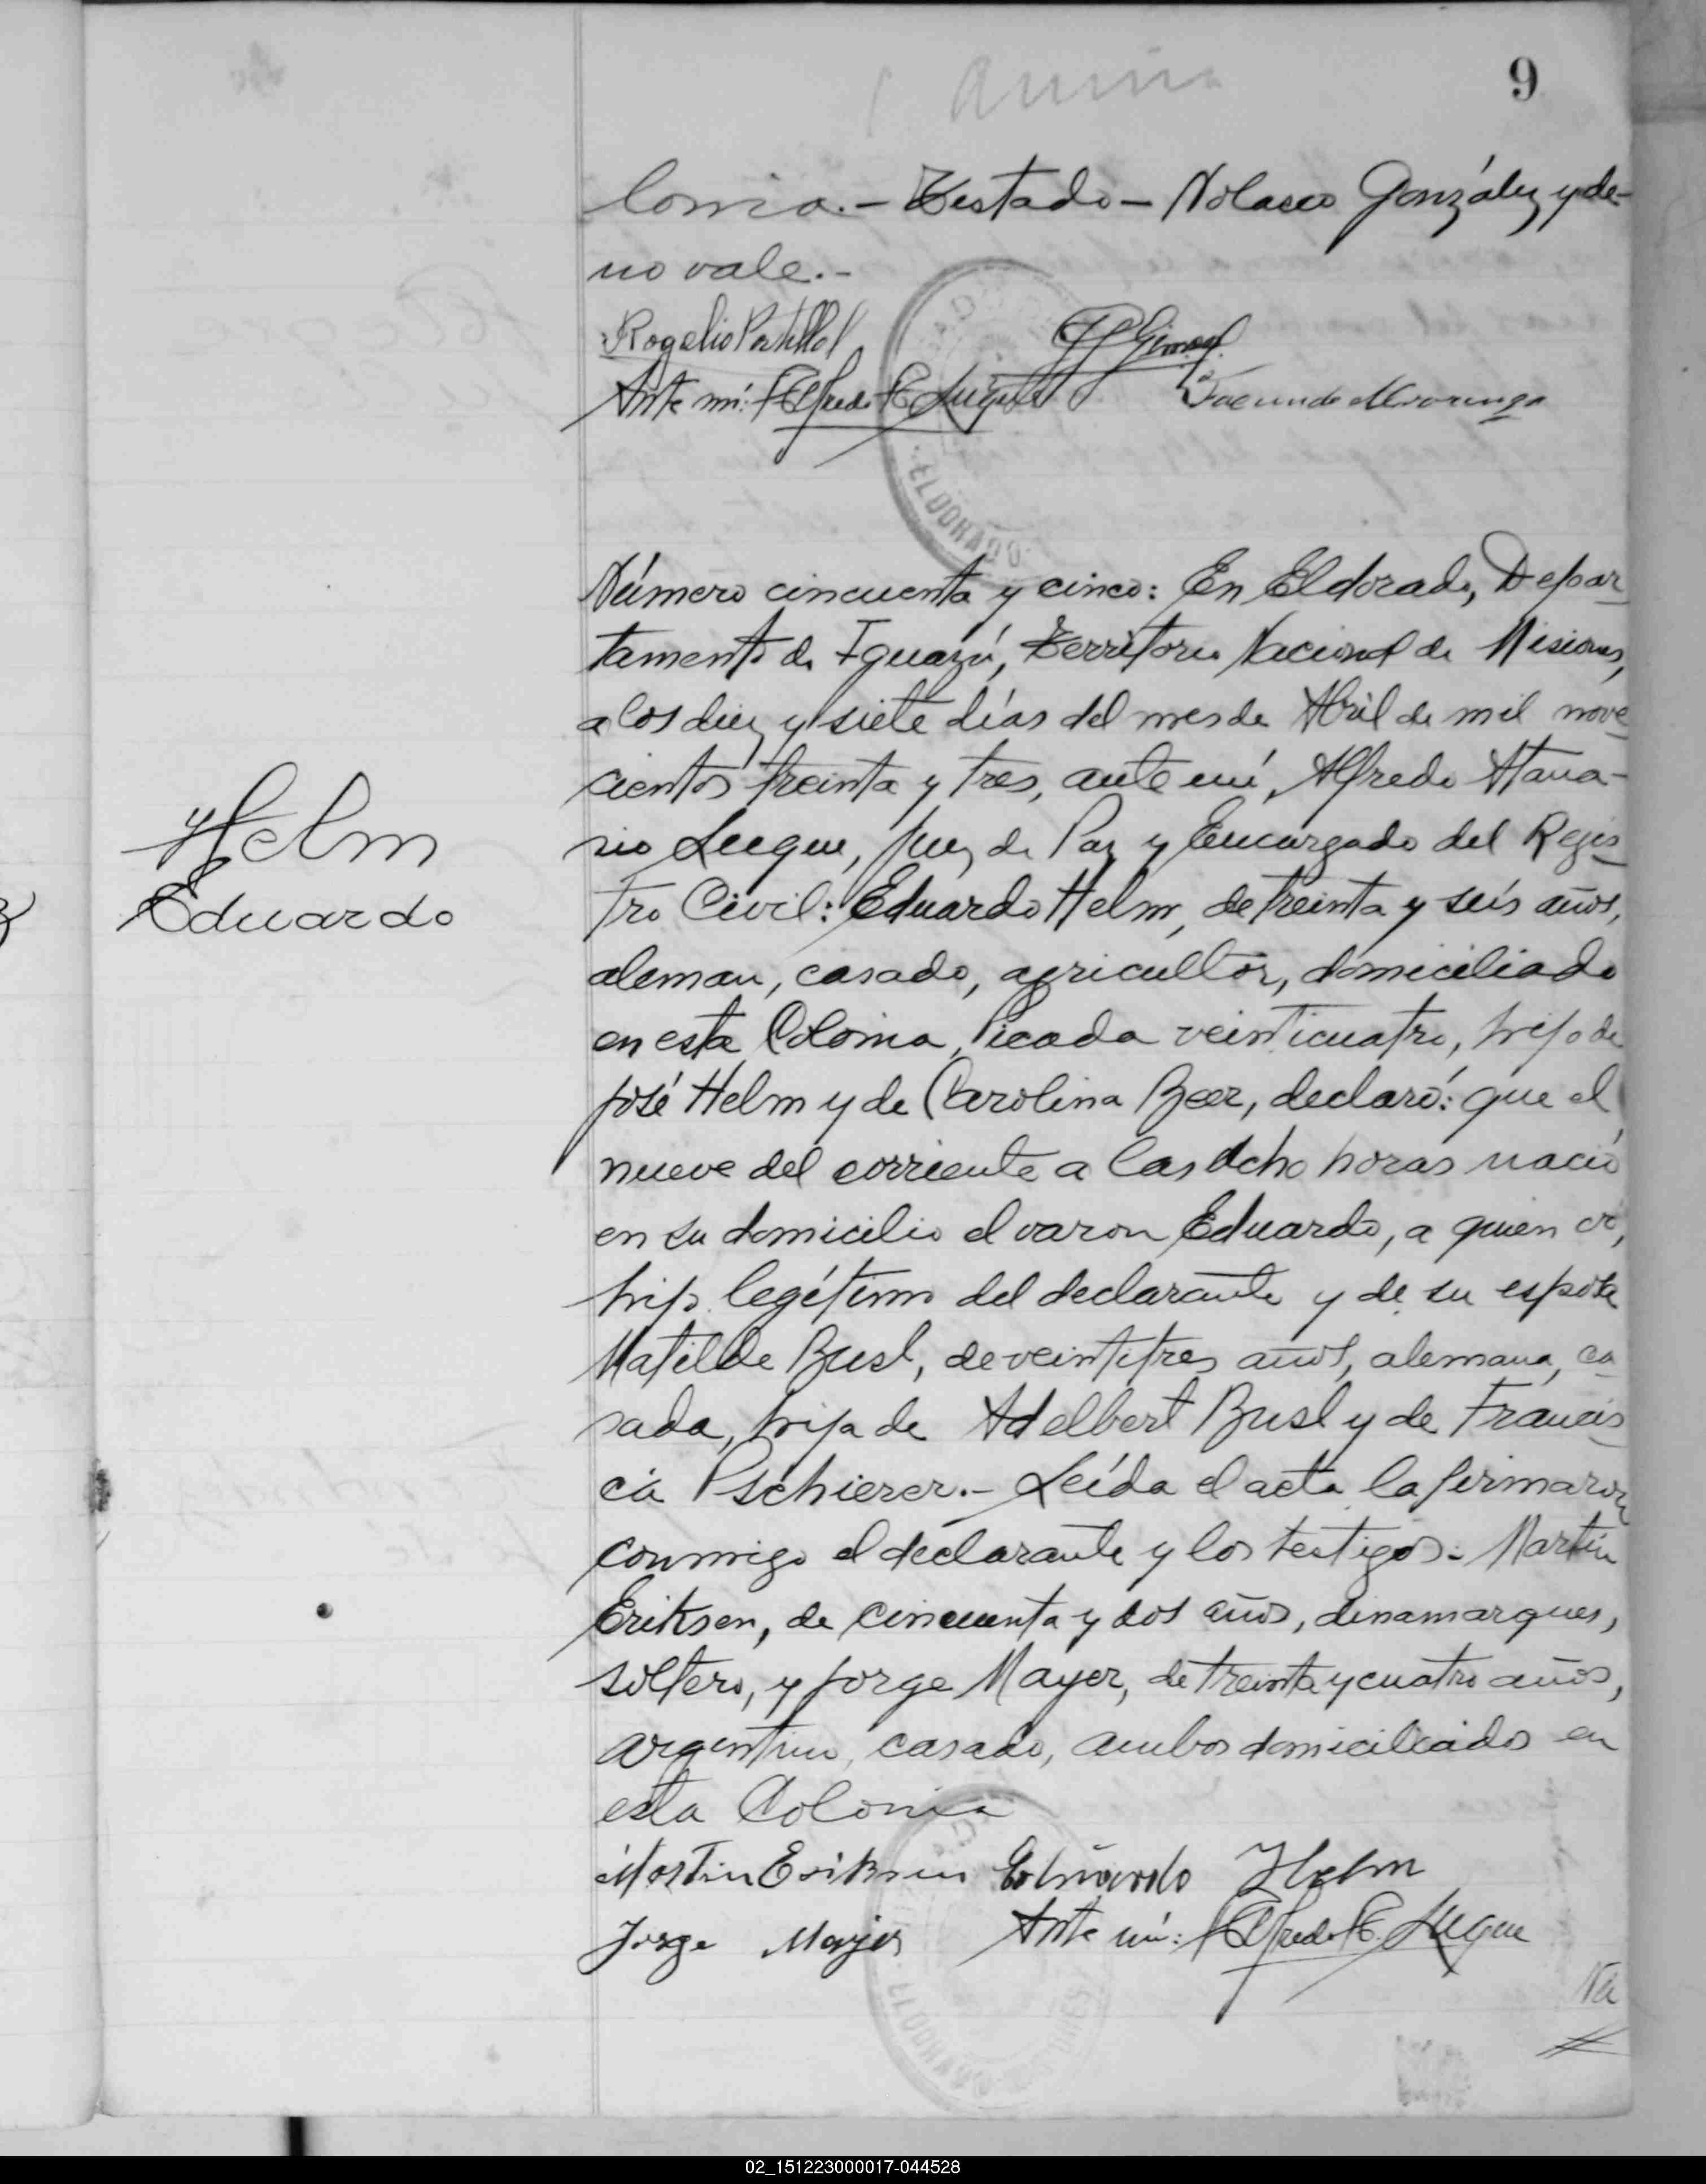 9
lonia.- Testado - Nolasco González y de-
no vale.-
Rogelio Portillo
Ante mí: Alfredo A. Luque
Facundo
ELDORADO
Número cincuenta y cinco: En Eldorado, Depar-
tamento de Iguazú, Territorio Nacional de Misiones,
a los diez y siete días del mes de Abril de mil nove-
cientos treinta y tres, ante mí, Alfredo Atana-
sio Luque, Juez de Paz y Encargado del Regis-
tro Civil: Eduardo Helm, de treinta y seis años,
Helm
Eduardo
aleman, casado, agricultor, domiciliado
en esta Colonia, Picada veinticuatro, hijo de
José Helm y de Carolina Beer, declaró: que el
nueve del corriente a las ocho horas nació
en su domicilio el varon Eduardo, a quien vé,
hijo legítimo del declarante y de su esposa
Matilde Busl, de veintitres años, alemana, ca-
sada, hija de Adelbert Busl y de Francis-
ca Pschierer.- Leída el acta la firmaron
conmigo el declarante y los testigos: Martin
Eriksen, de cincuenta y dos años, dinamarques,
soltero, y Jorge Mayer, de treinta y cuatro años,
argentino, casado, ambos domiciliados en
esta Colonia
Martin Eriksen Eduardo Helm
Jorge Mayer Ante mí: Alfredo A. Luque
ELDORADO
Na
02_151223000017-044528